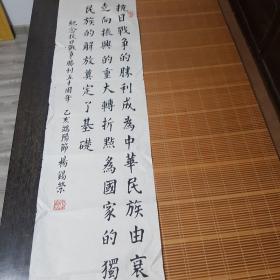 抗日戰争的勝利成為中華民族由衰
走向振興的重大轉折點為國家的獨
民族的解放奠定了基礎
紀念抗日戰争勝利五十周年 乙亥端陽節 楊錫